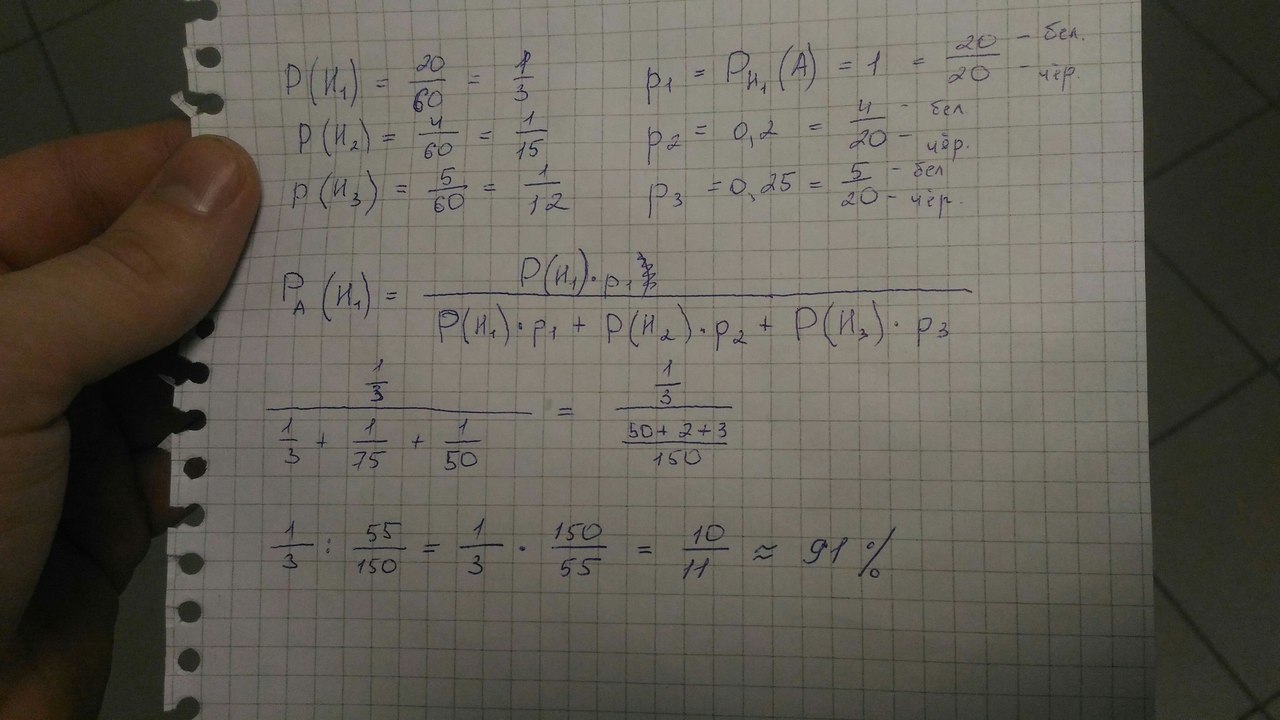 P(H₁) = 20/60 = 1/3    p₁ = P_H₁(A) = 1 = 20/20 – бел. – чёр.
P(H₂) = 4/60 = 1/15    p₂ = 0,2 = 4/20 – бел – чёр.
P(H₃) = 5/60 = 1/12    p₃ = 0,25 = 5/20 – бел – чёр.
P_A(H₁) = P(H₁)·p₁ / P(H₁)·p₁ + P(H₂)·p₂ + P(H₃)·p₃
1/3 / 1/3 + 1/75 + 1/50 = 1/3 / 50+2+3/150
1/3 : 55/150 = 1/3 · 150/55 = 10/11 ≈ 91%